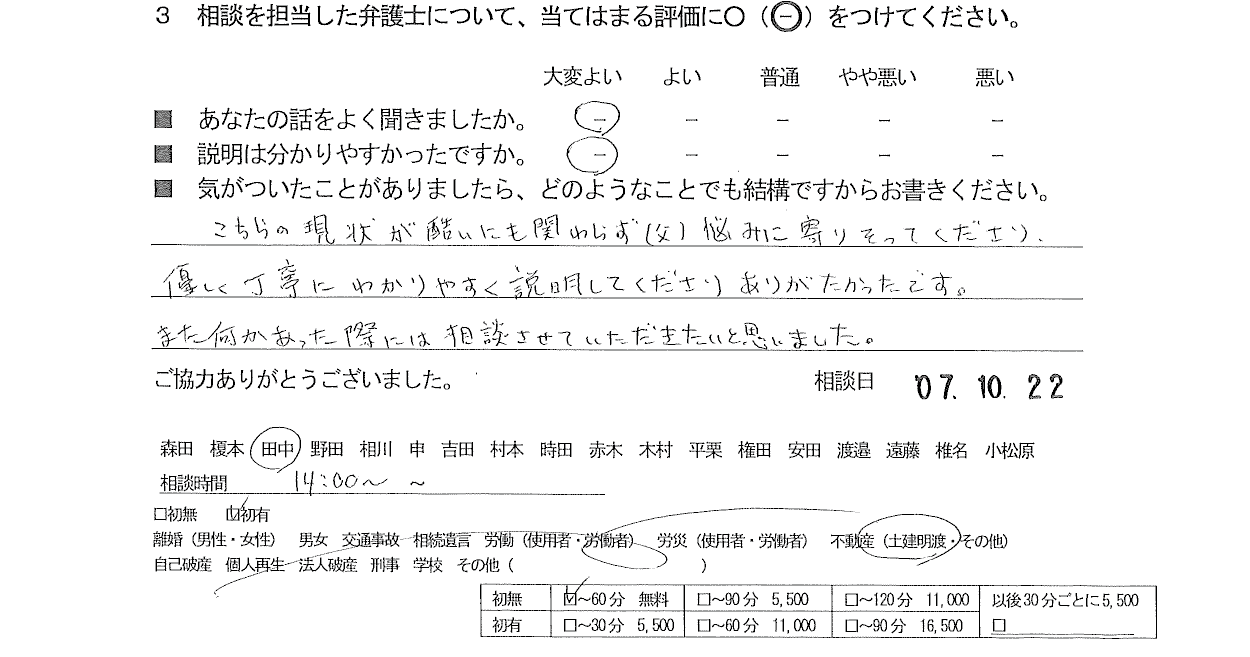 3 相談を担当した弁護士について、当てはまる評価に○（⊖）をつけてください。
大変よい よい 普通 やや悪い 悪い
■ あなたの話をよく聞きましたか。 − − − − −
■ 説明は分かりやすかったですか。 − − − − −
■ 気がついたことがありましたら、どのようなことでも結構ですからお書きください。
こちらの現状が酷いにも関わらず(父)悩みに寄りそってくださり、
優しく丁寧にわかりやすく説明してくださりありがたかったです。
また何かあった際には相談させていただきたいと思いました。
ご協力ありがとうございました。 相談日 '07. 10. 22
森田 榎本 田中 野田 相川 申 吉田 村本 時田 赤木 木村 平栗 権田 安田 渡邉 遠藤 椎名 小松原
相談時間 14:00〜 〜
□初無 ☑初有
離婚（男性・女性） 男女 交通事故 相続遺言 労働（使用者・労働者） 労災（使用者・労働者） 不動産（土建明渡・その他）
自己破産 個人再生 法人破産 刑事 学校 その他（ ）
初無 ☑〜60分 無料 □〜90分 5,500 □〜120分 11,000 以後30分ごとに5,500
初有 □〜30分 5,500 □〜60分 11,000 □〜90分 16,500 □